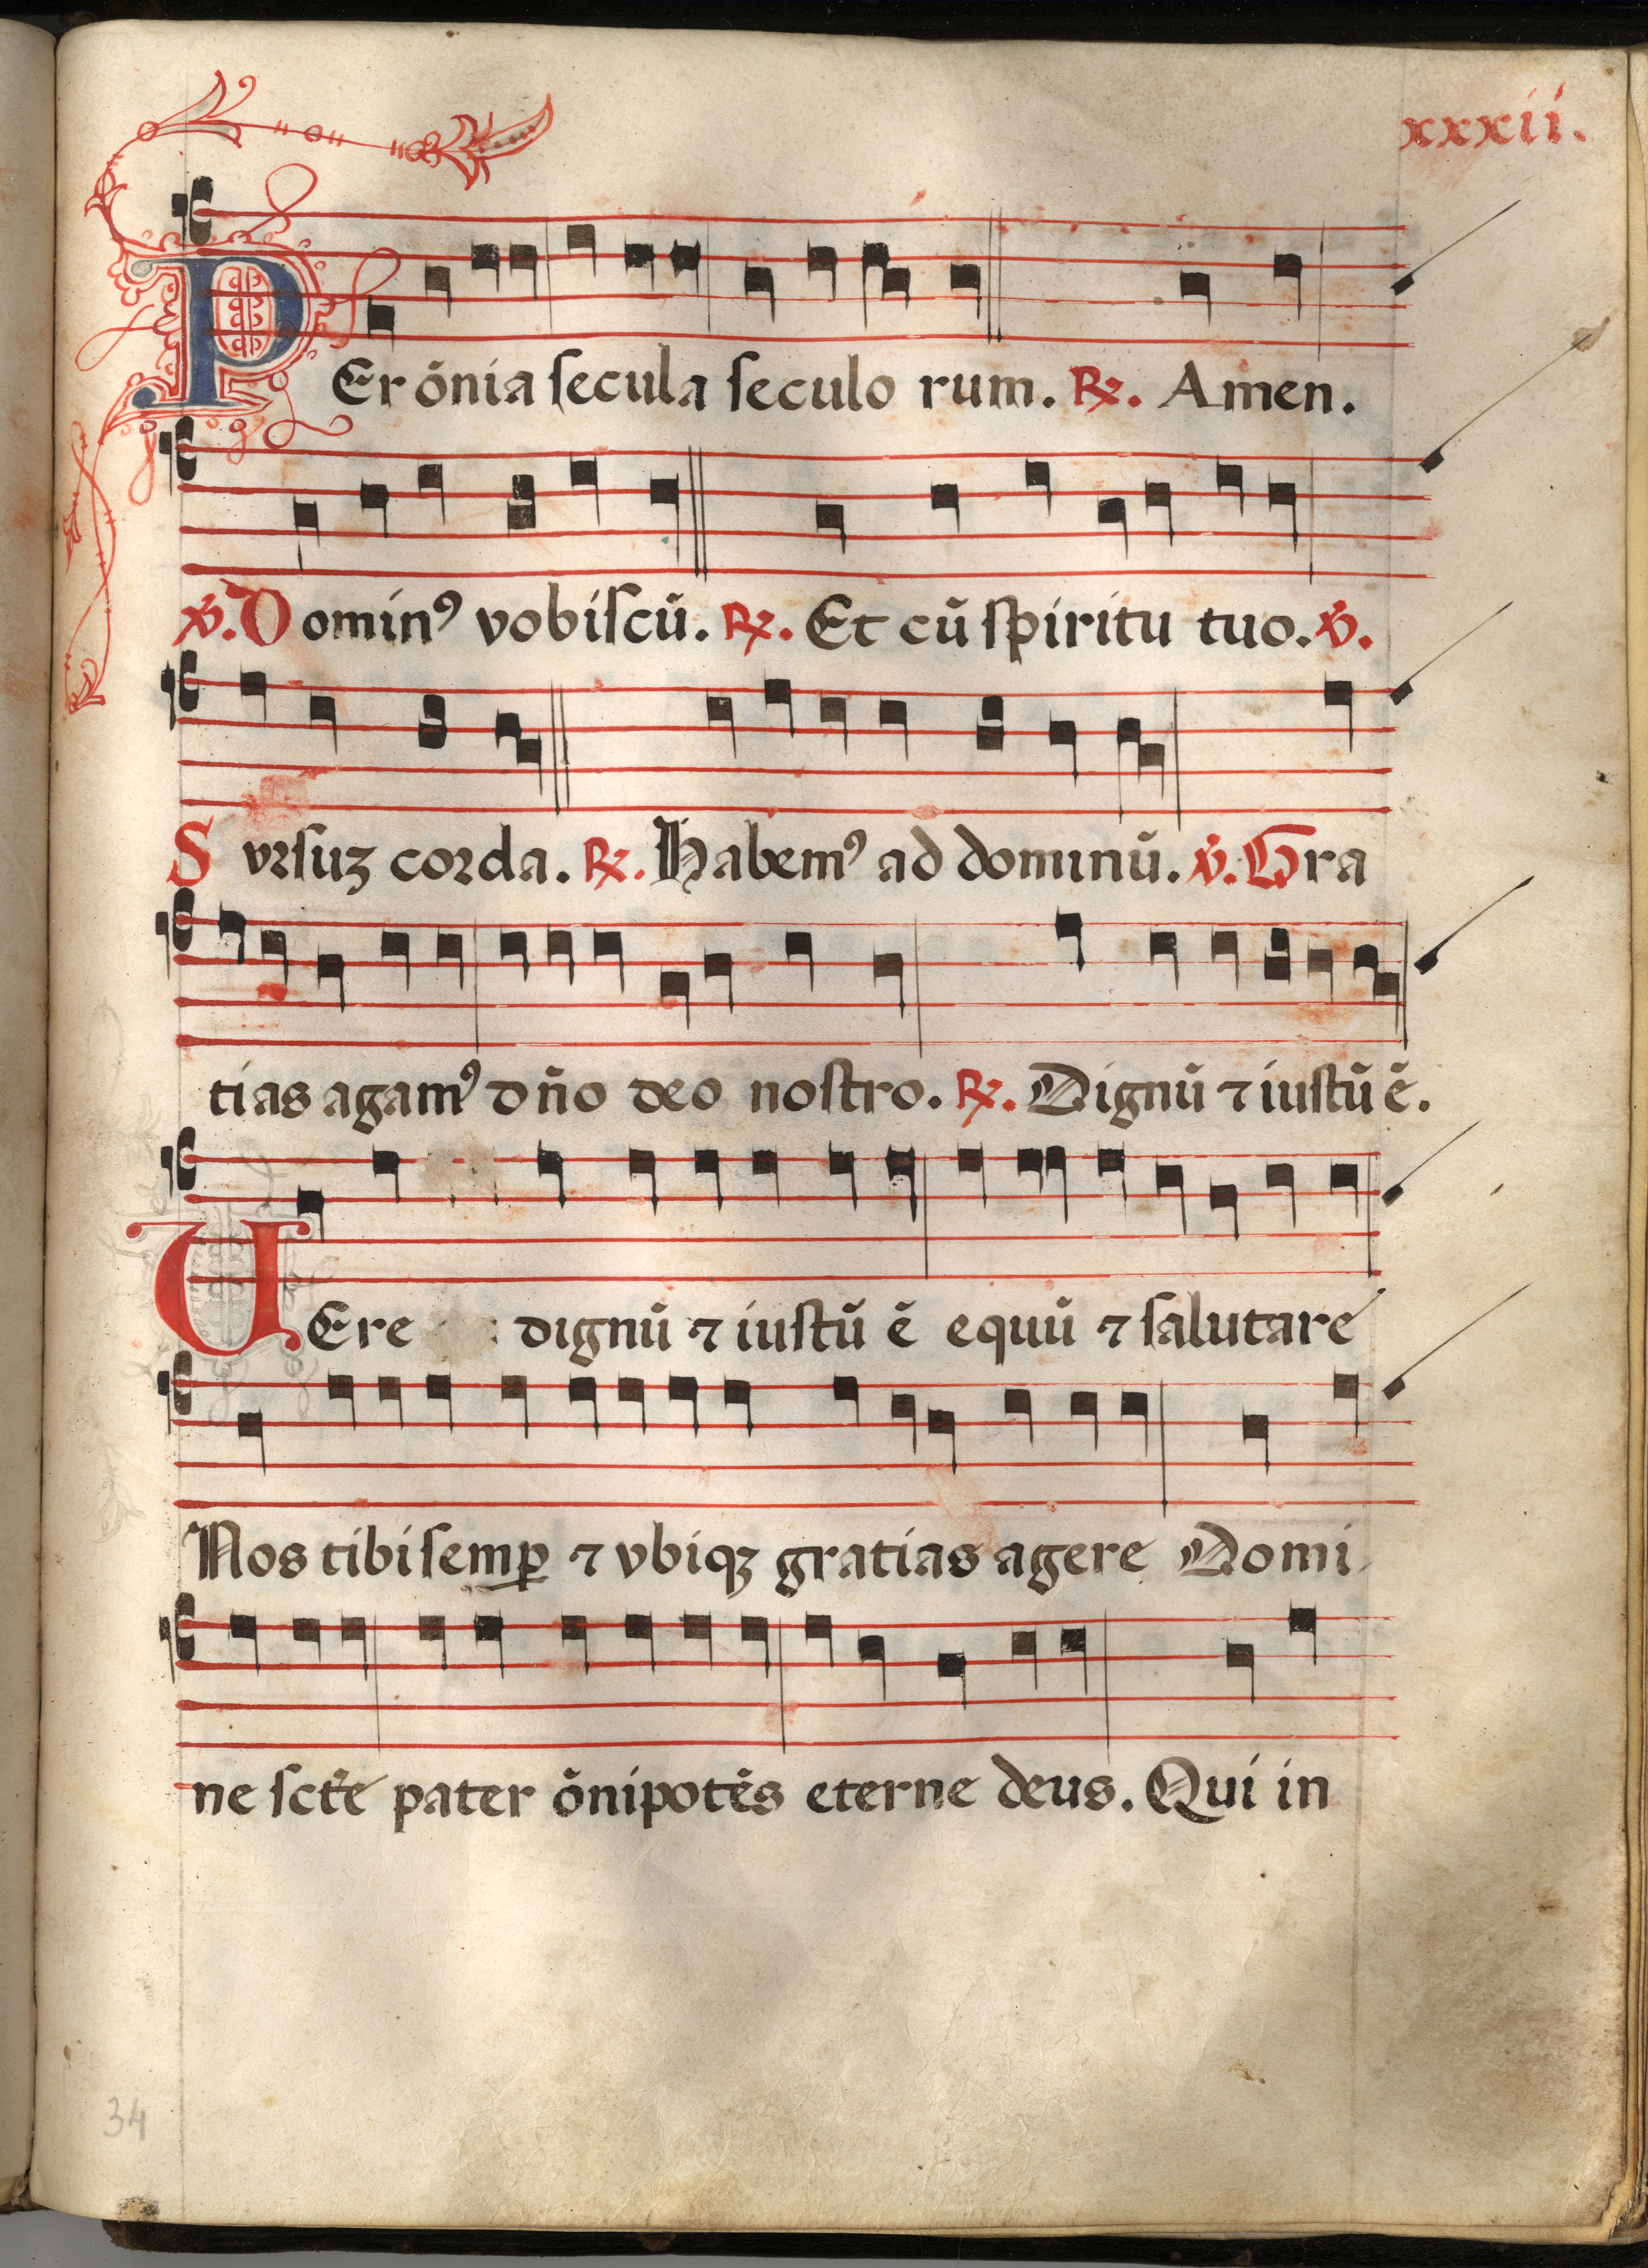 xxxii.
PEr õnia secula seculo rum. ℟. Amen.
℣. Dominꝰ vobiscũ. ℟. Et cũ spiritu tuo. ℣.
Sursuꝫ corda. ℟. Habemꝰ ad dominũ. ℣. Gra
tias agamꝰ dño deo nostro. ℟. Dignũ ⁊ iustũ ẽ.
UEre dignũ ⁊ iustũ ẽ equũ ⁊ salutare
Nos tibi semꝑ ⁊ vbiqꝫ gratias agere Domi
ne sct̃e pater õnipotẽs eterne deus. Qui in
34